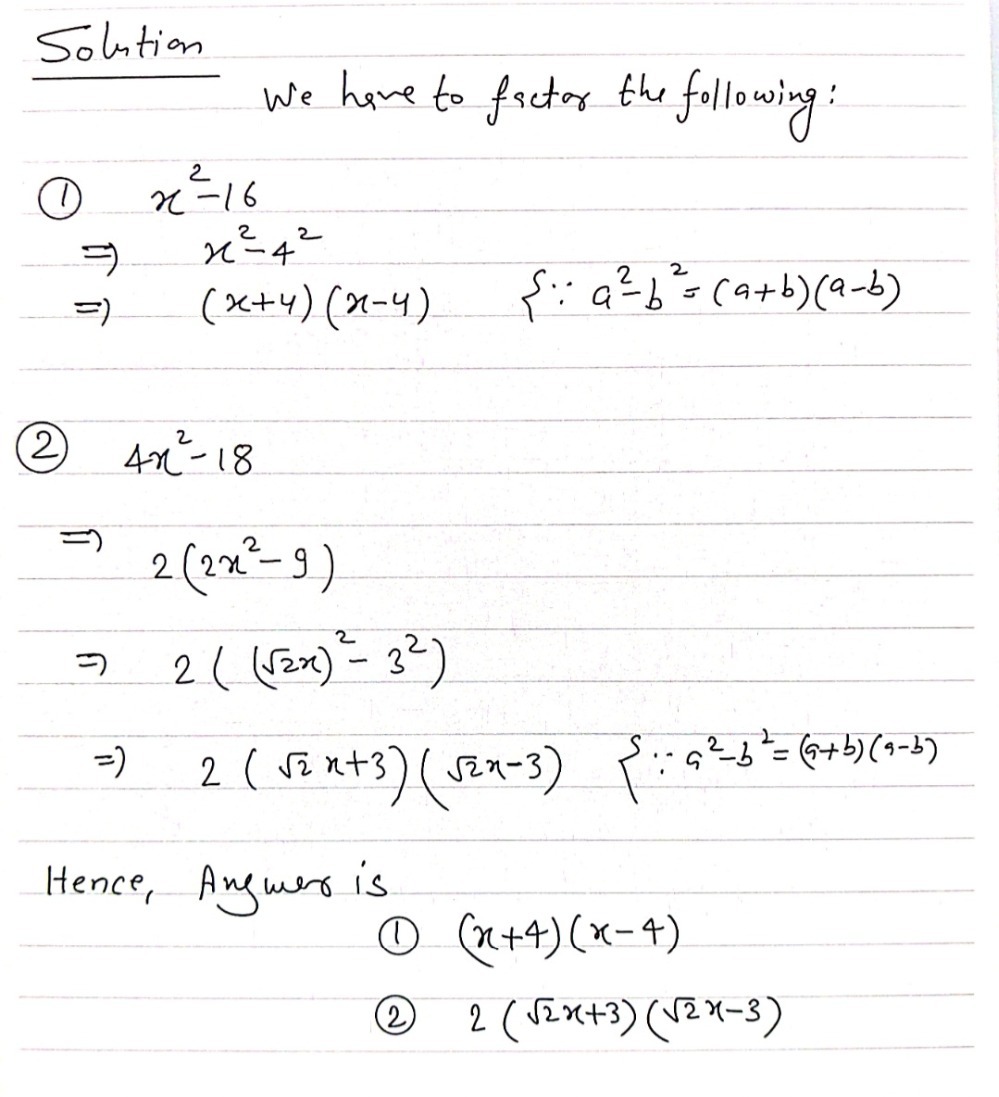 Solution
We have to factor the following:
① x²-16
⇒ x²-4²
⇒ (x+4)(x-4) {∵ a²-b²=(a+b)(a-b)
② 4x²-18
⇒ 2(2x²-9)
⇒ 2((√2x)²-3²)
⇒ 2(√2x+3)(√2x-3) {∵ a²-b²=(a+b)(a-b)
Hence, Answer is
① (x+4)(x-4)
② 2(√2x+3)(√2x-3)